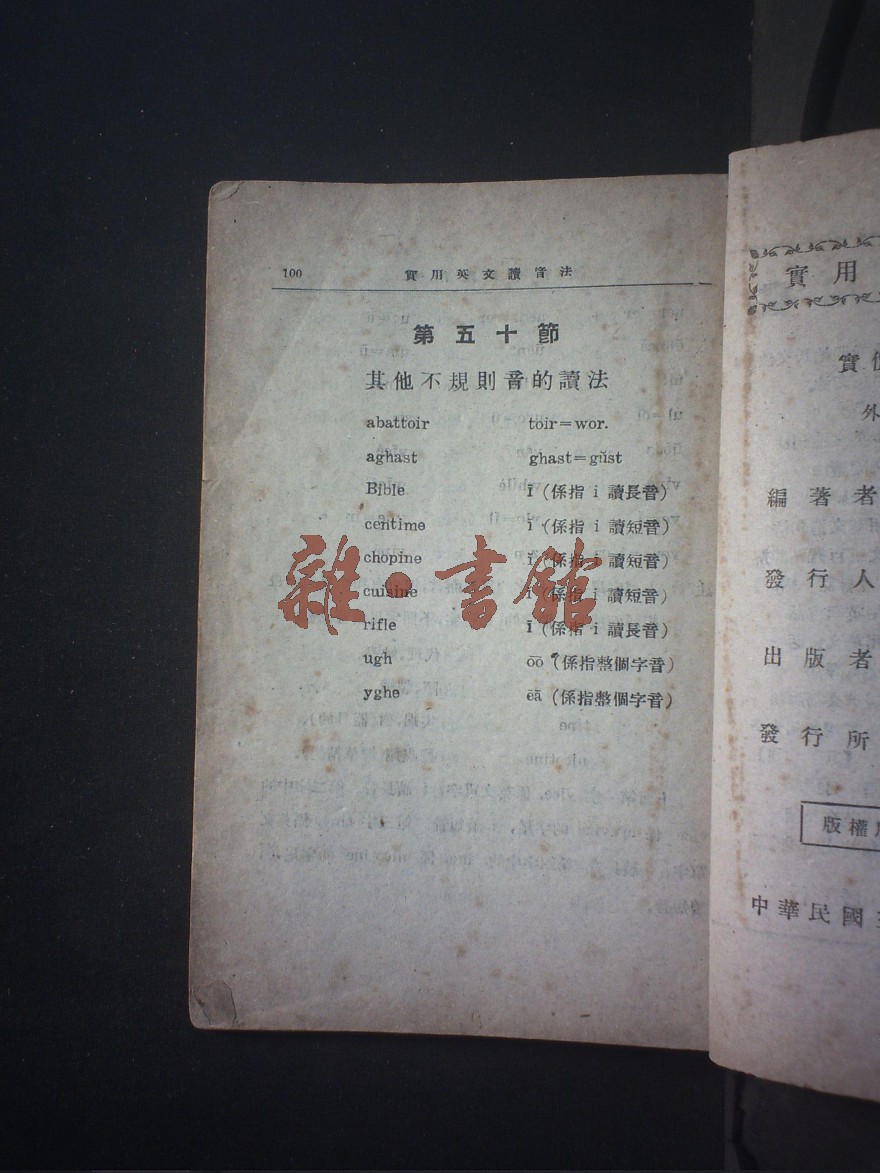 100 實用英文讀音法
第五十節
其他不規則音的讀法
abattoir toir=wor.
aghast ghast=gŭst
Bible ī (係指 i 讀長音)
centime ĭ (係指 i 讀短音)
chopine ĭ (係指 i 讀短音)
cuisine ĭ (係指 i 讀短音)
rifle ī (係指 i 讀長音)
ugh ōō (係指整個字音)
yghe ēā (係指整個字音)
雜·書館
實用
實價
外
編著者
發行人
出版者
發行所
版權
中華民國